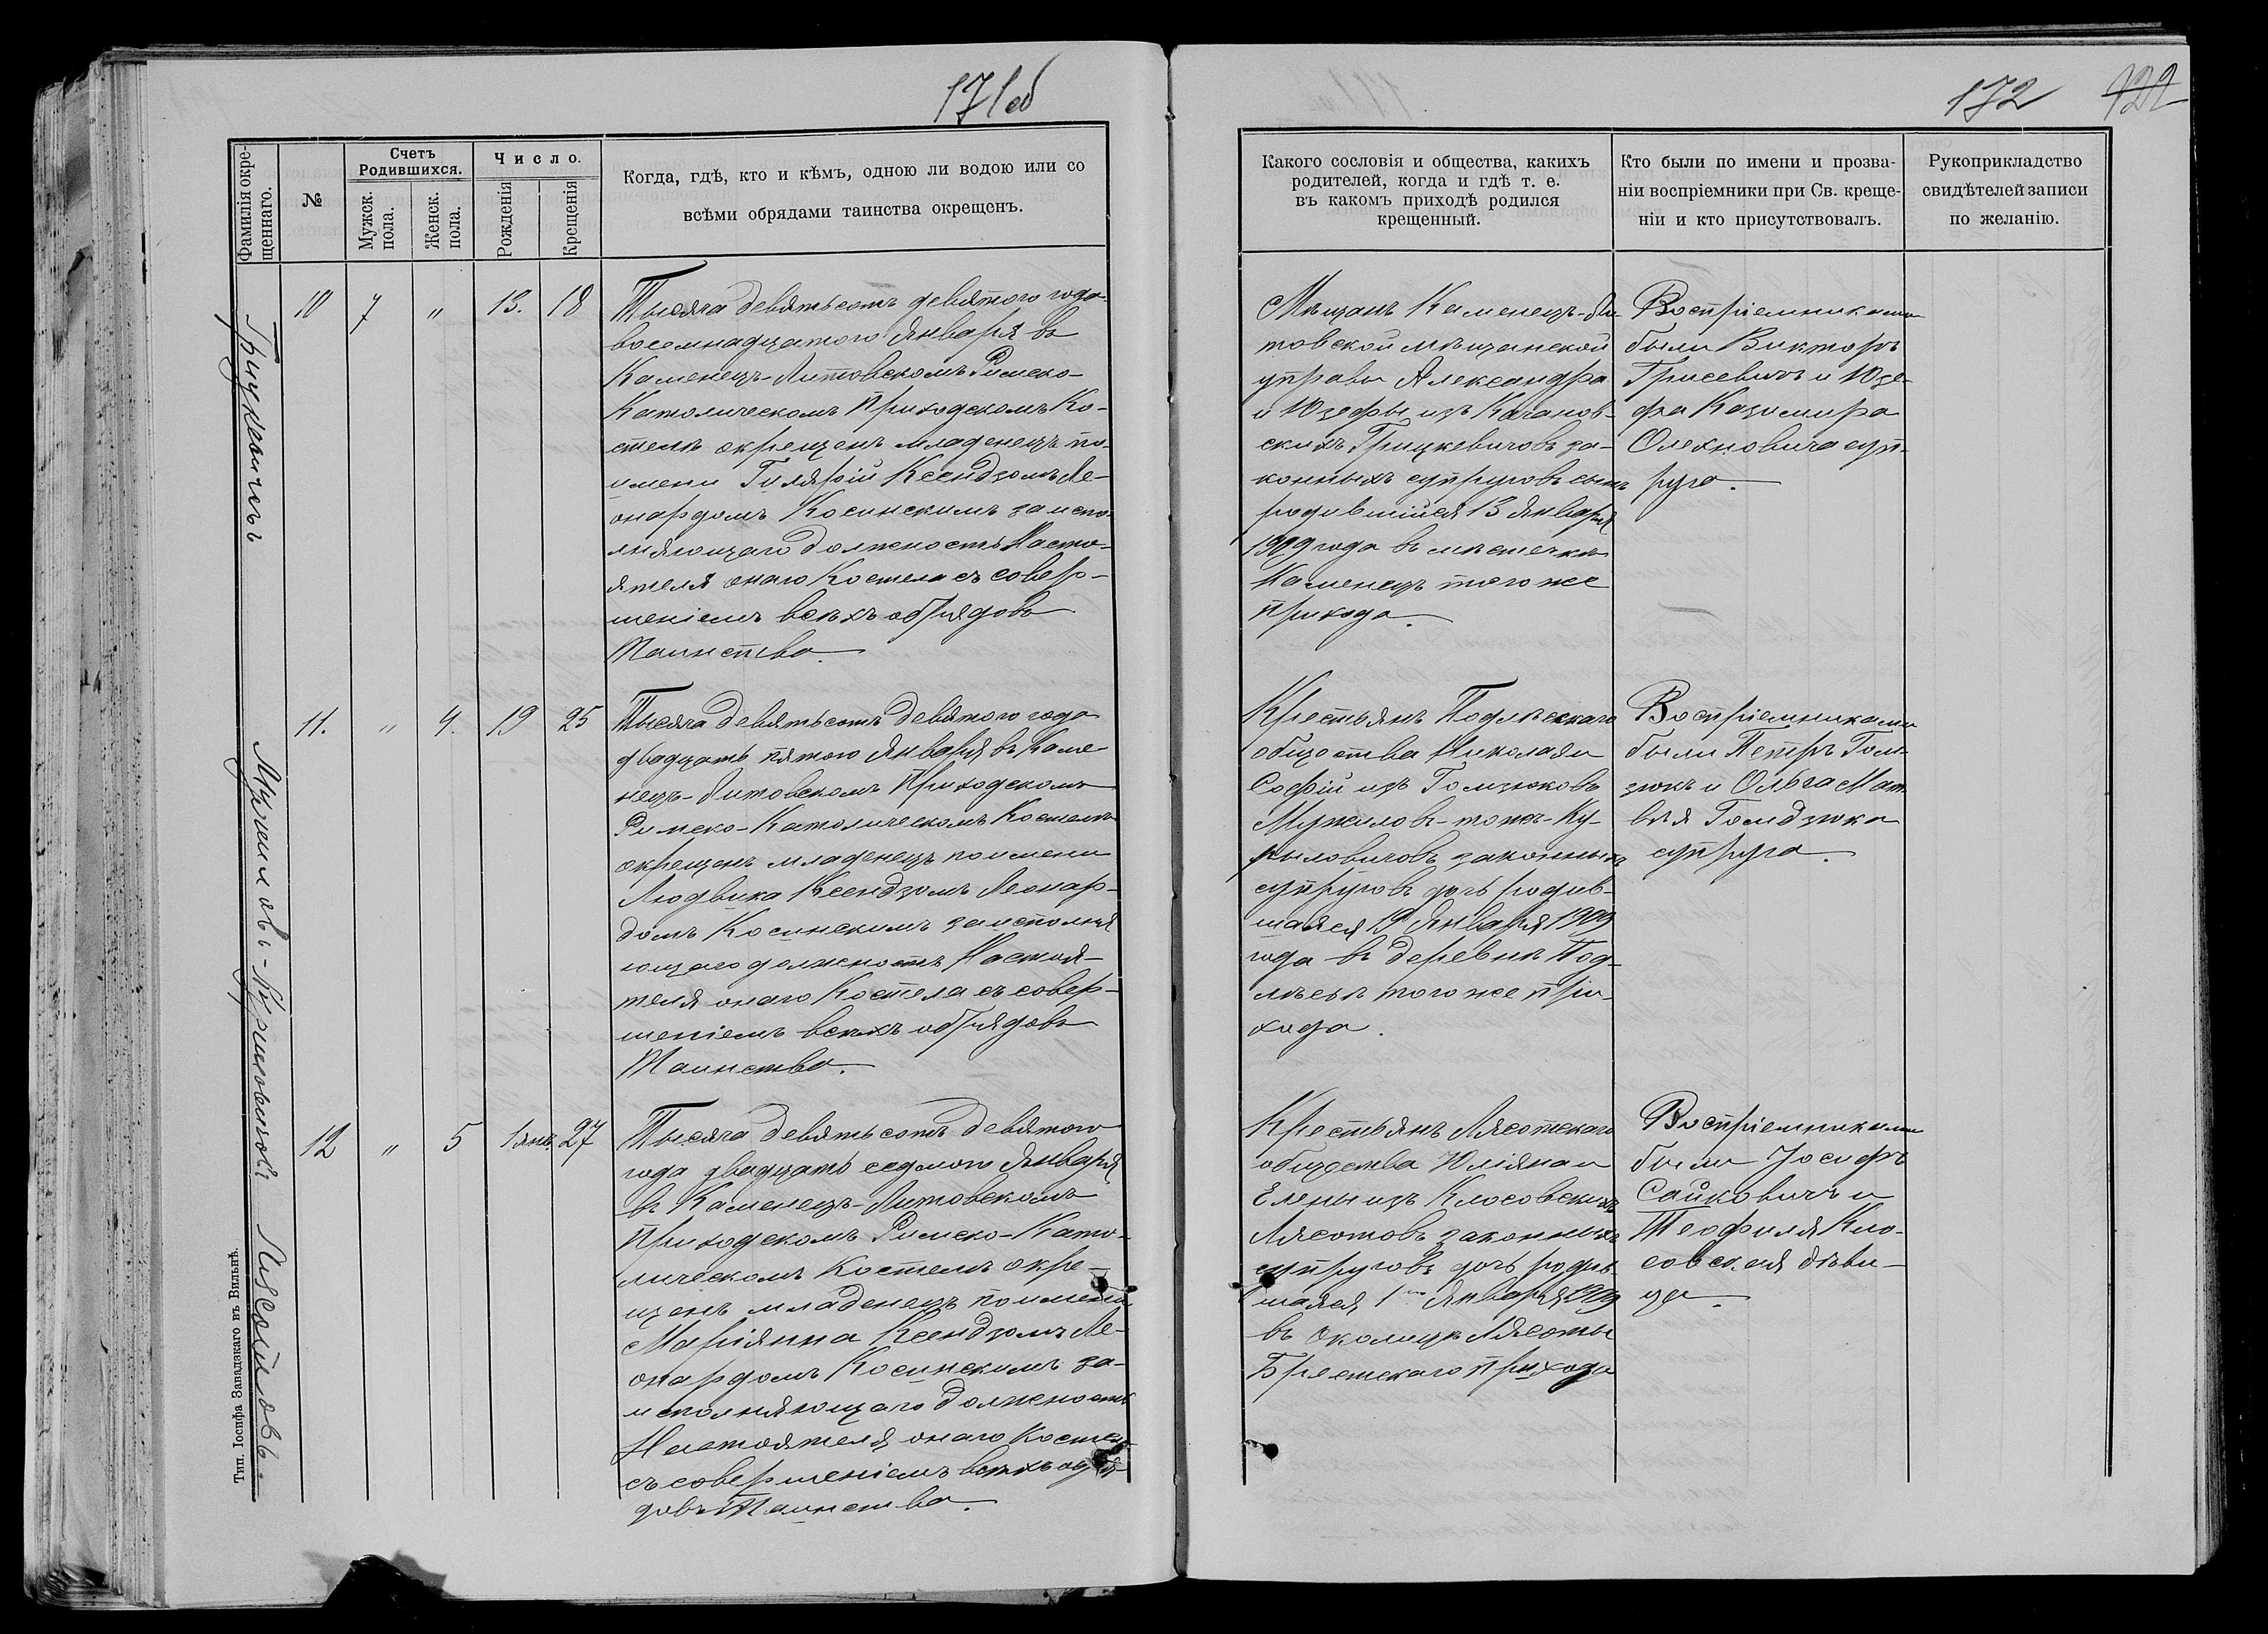 171об
Фамилія окре-
щеннаго.
№
Счетъ
Родившихся.
Мужск.
пола.
Женск.
пола.
Число.
Рожденія
Крещенія
Когда, гдѣ, кто и кѣмъ, одною ли водою или со
всѣми обрядами таинства окрещенъ.
Грицкевичъ
10 7 " 13. 18
Тысяча девятьсотъ девятого года
восемнадцатого Января въ
Каменецъ-Литовскомъ Римско-
Католическомъ Приходскомъ Ко-
стелѣ окрещенъ младенецъ по
имени Гилярій Ксендзомъ Ле-
онардомъ Косинскимъ за испо-
лняющаго должность Насто-
ятеля онаго Костела съ совер-
шеніемъ всѣхъ обрядовъ
Таинства.
11. " 4. 19 25
Тысяча девятьсотъ девятого года
двадцать пятого Января въ Каме-
нецъ-Литовскомъ Приходскомъ
Римско-Католическомъ Костелѣ
окрещенъ младенецъ по имени
Людвика Ксендзомъ Леонар-
домъ Косинскимъ за исполня
ющаго должность Настоя-
теля онаго Костела съ совер-
шеніемъ всѣхъ обрядовъ
Таинства.
Лясотовъ.
12 " 5 1 янв. 27
Тысяча девятьсотъ девятого
года двадцать седмого Января
въ Каменецъ-Литовскомъ
Приходскомъ Римско-Като-
лическомъ Костелѣ окре-
щенъ младенецъ по имени
Маріянна Ксендзомъ Ле-
онардомъ Косинскимъ за-
исполняющаго должность
Настоятеля онаго Костела
съ совершеніемъ всѣхъ обря-
довъ Таинства.
Тип. Іосифа Завадзкаго въ Вильнѣ.
172 122
Какого сословія и общества, какихъ
родителей, когда и гдѣ т. е.
въ какомъ приходѣ родился
крещенный.
Кто были по имени и прозва-
ніи воспріемники при Св. креще-
ніи и кто присутствовалъ.
Рукоприкладство
свидѣтелей записи
по желанію.
Мѣщанъ Каменецъ-Ли
товской мѣщанской
управы Александра
и Юзефы изъ Качанов-
скихъ Грицкевичовъ за-
конныхъ супруговъ сынъ
родившійся 13 Января
1909 года въ мѣстечкѣ
Каменецъ того же
прихода.
Воспріемниками
были Викторъ
Грисевичъ и Юзе-
фа Казимира
Олехновича суп-
руга.
Крестьянъ Подлѣскаго
общества Николая и
Софіи изъ Гомзюковъ
Муржиловъ-тожъ-Ку-
рыловичовъ законныхъ
супруговъ дочь родив-
шаяся 19 Января 1909
года въ деревнѣ Под-
лѣсьѣ того же при-
хода.
Воспріемниками
были Петръ Гом-
зюкъ и Ольга Мат-
вѣя Гомдзюка
супруга.
Крестьянъ Лясотскаго
общества Юліяна и
Елены изъ Клосовскихъ
Лясотовъ законныхъ
супруговъ дочь родив-
шаяся 1го Января 1909
въ околицѣ Лясоты
Брестскаго прихода
Воспріемниками
были Іосифъ
Сайковичъ и
Теофиля Кло-
совская дѣви-
ца.